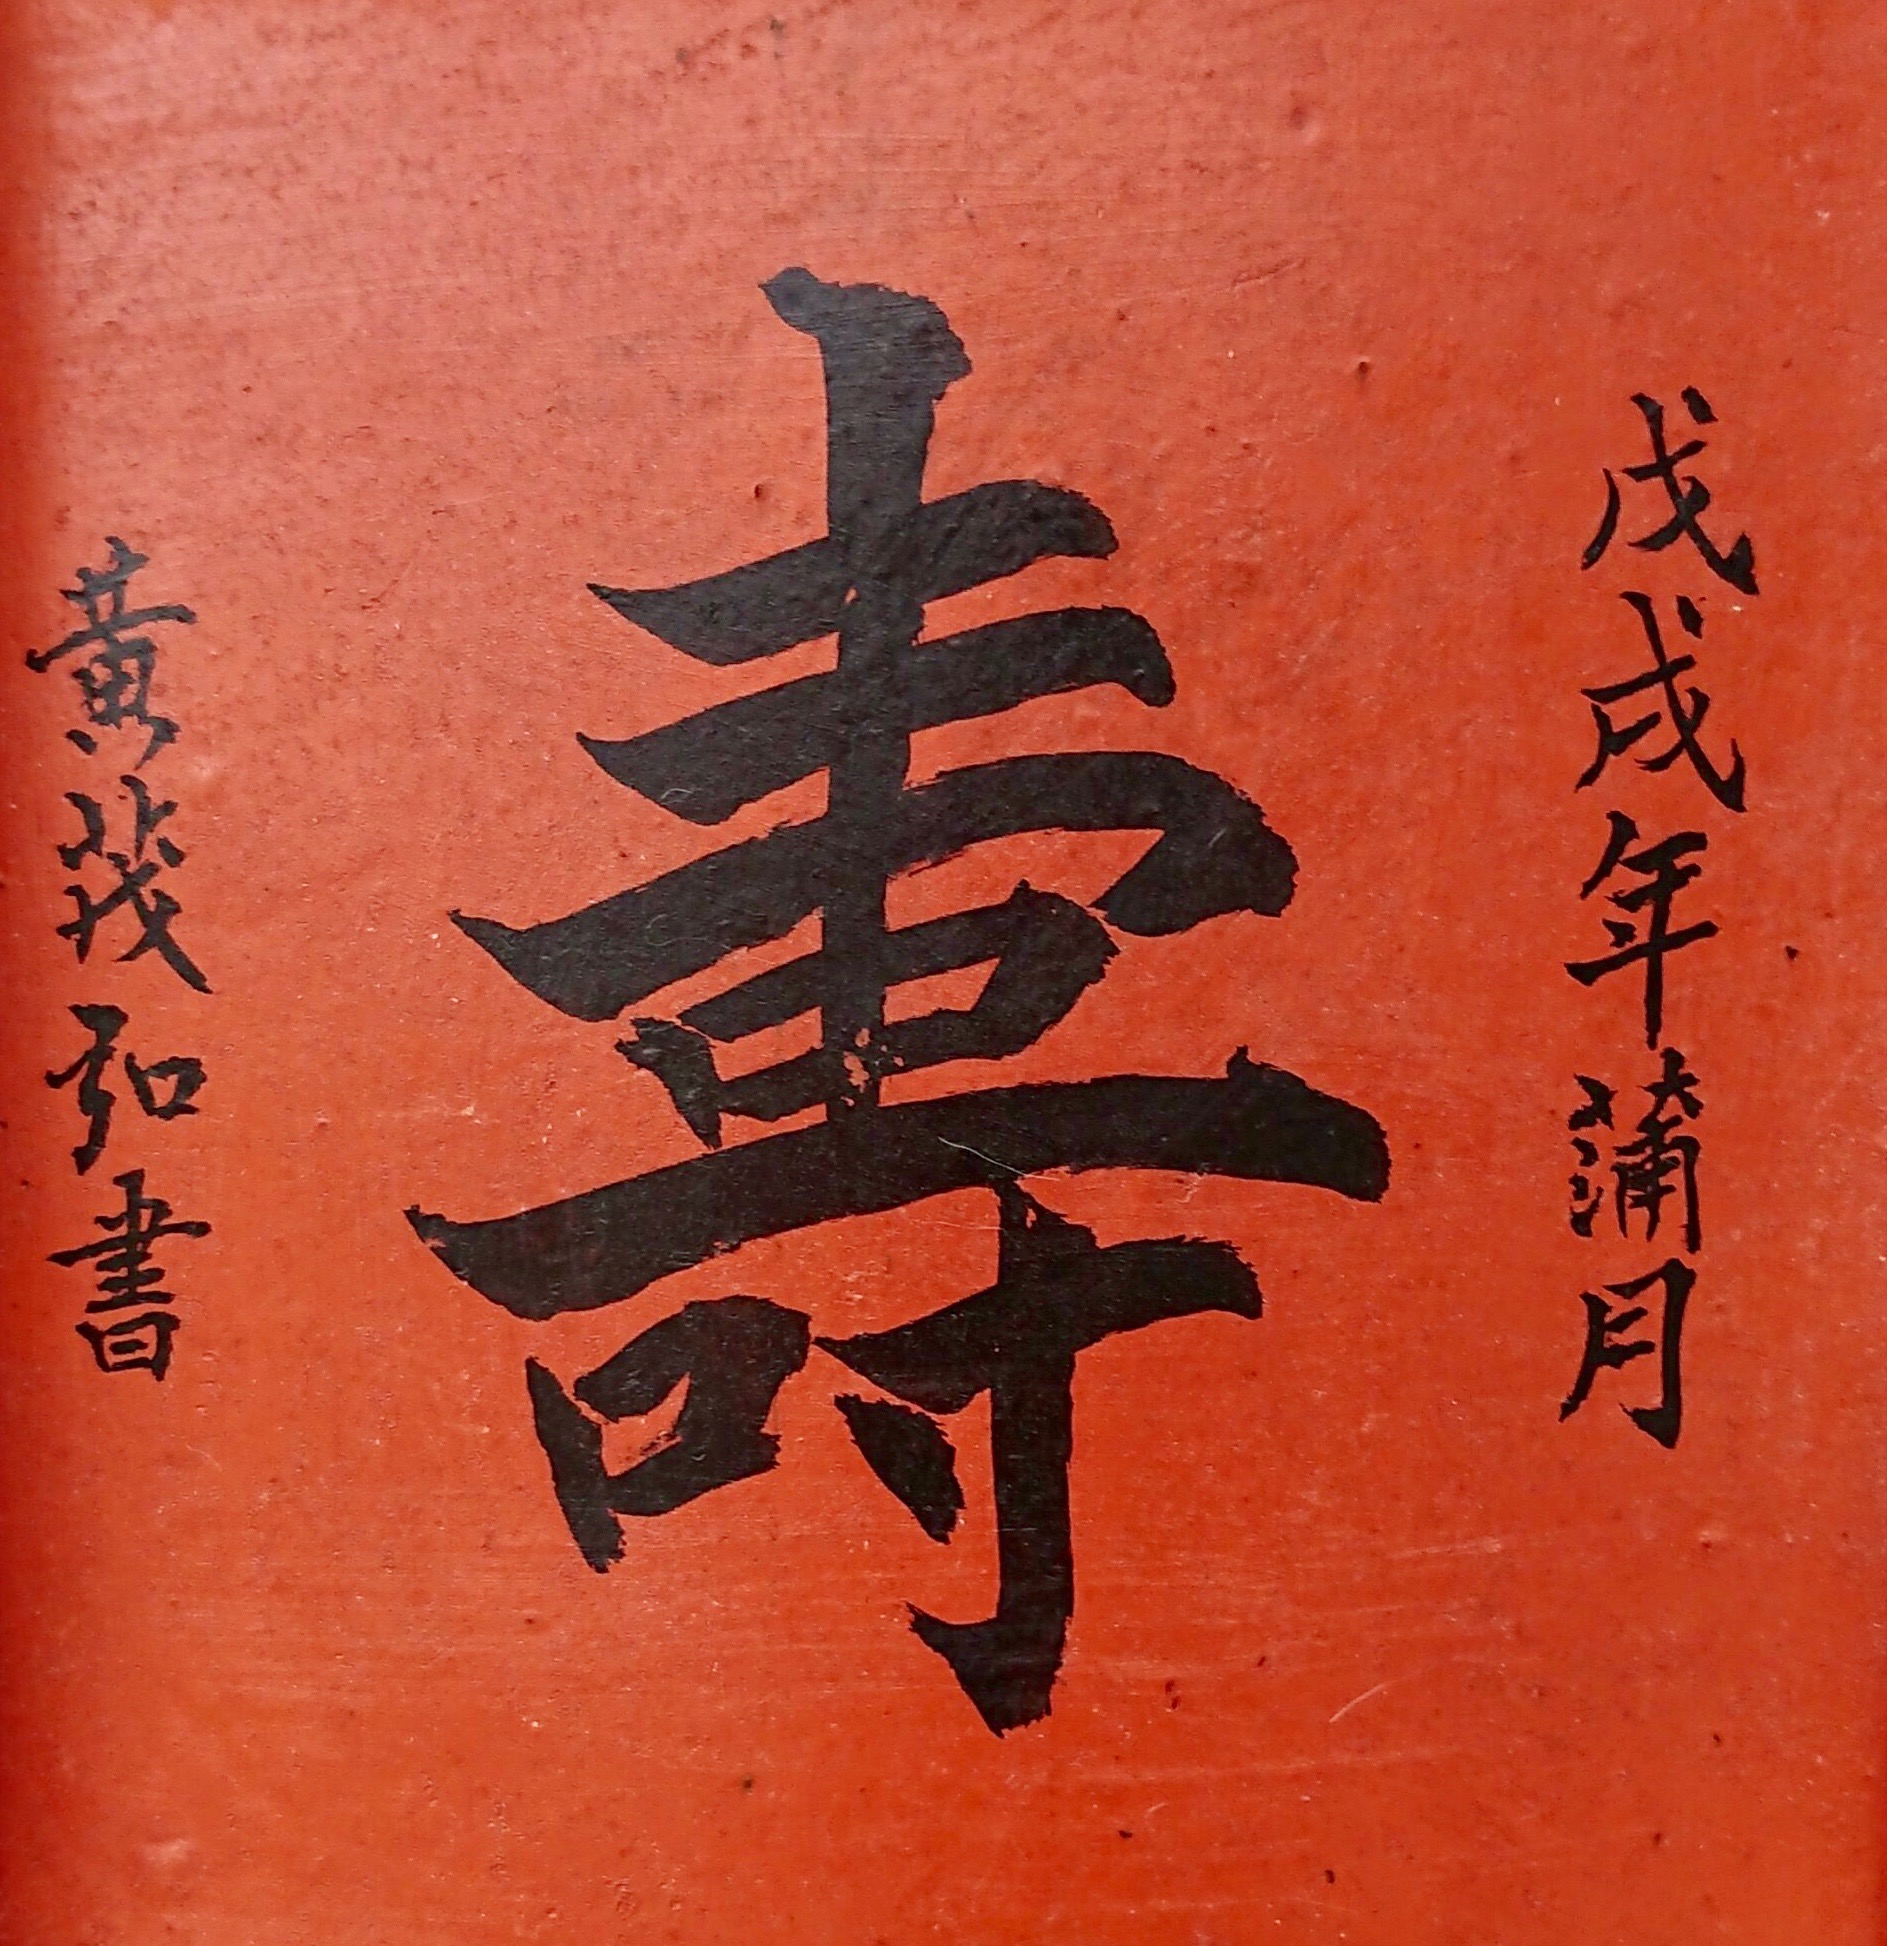 戊戌年蒲月
壽
黃莪弘書